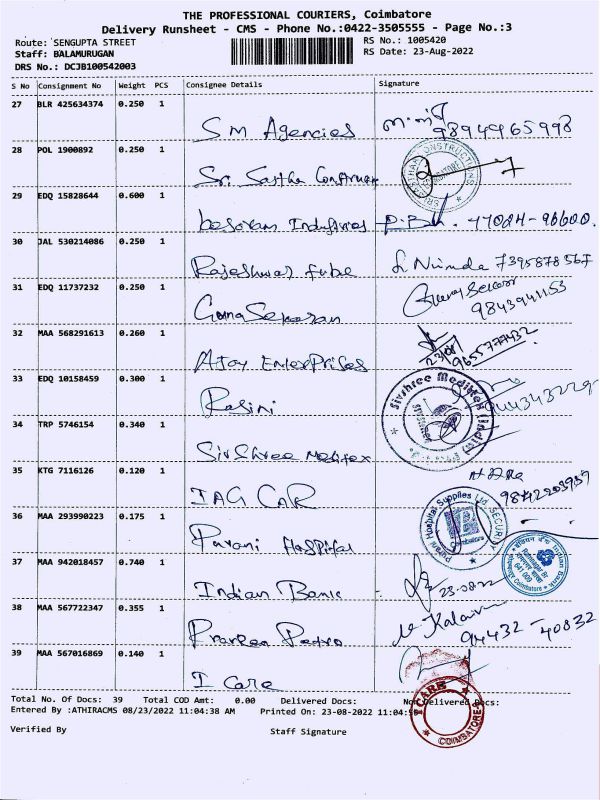 THE PROFESSIONAL COURIERS, Coimbatore
Delivery Runsheet - CMS - Phone No.:0422-3505555 - Page No.:3
Route: SENGUPTA STREET
RS No.: 1005420
Staff: BALAMURUGAN
RS Date: 23-Aug-2022
DRS No.: DCJB100542003
S No Consignment No Weight PCS Consignee Details Signature
27 BLR 425634374 0.250 1
SM Agencies 9894965998
28 POL 1900892 0.250 1
Sri Sastha Construn
29 EDQ 15828644 0.600 1
besoram Industries
30 JAL 530214086 0.250 1
Rajeshwar tube 7395878567
31 EDQ 11737232 0.250 1
GunaSekaran 9843941153
32 MAA 568291613 0.260 1
AJay EnterPrises 23/08/ 9655777432
33 EDQ 10158459 0.300 1
Rasini
Sivshree Meditex (India)
34 TRP 5746154 0.340 1
SivShree Meditex
35 KTG 7116126 0.120 1
TAG CAR
36 MAA 293990223 0.175 1
Purani Hospital
Purani Hospital Supplies Ltd. SECURITY
Coimbatore
37 MAA 942018457 0.740 1
Indian Bank 23-08-22
641 009
38 MAA 567722347 0.355 1
Praveen Pedro Kalaivani
94432-40832
39 MAA 567016869 0.140 1
I Care
I CARE
COIMBATORE
Total No. Of Docs: 39 Total COD Amt: 0.00 Delivered Docs: Non Delivered Docs:
Entered By :ATHIRACMS 08/23/2022 11:04:38 AM Printed On: 23-08-2022 11:04:5
Verified By Staff Signature